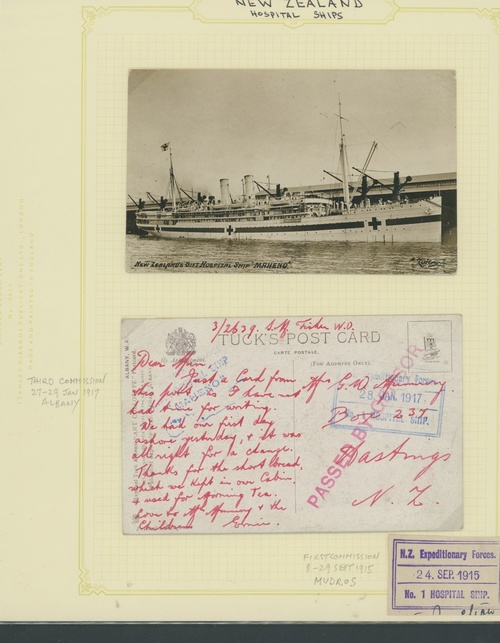 NEW ZEALAND
HOSPITAL SHIPS
NEW ZEALAND'S GIFT HOSPITAL SHIP "MAHENO."
3/2639. S.M. Fisher W.O.
TUCK'S POST CARD
CARTE POSTALE.
(FOR ADDRESS ONLY).
ALBANY, W.A.
Dear Mum,
Just a Card from
this port as I have not
had time for writing.
We had our first day
ashore yesterday, & it was
alright for a change.
Thanks for the short bread,
which we kept in our Cabin,
& used for Morning Tea.
Love to Mr Murray & the
Children Ernie.
Mrs G.W. Murray
Box 237
Hastings
N.Z.
PASSED BY CENSOR
Expeditionary Forces
28 JAN. 1917
HOSPITAL SHIP.
THIRD COMMISSION
27-29 JAN 1917
ALBANY
FIRST COMMISSION
8-29 SEPT 1915
MUDROS
N.Z. Expeditionary Forces.
24. SEP. 1915
No. 1 HOSPITAL SHIP.